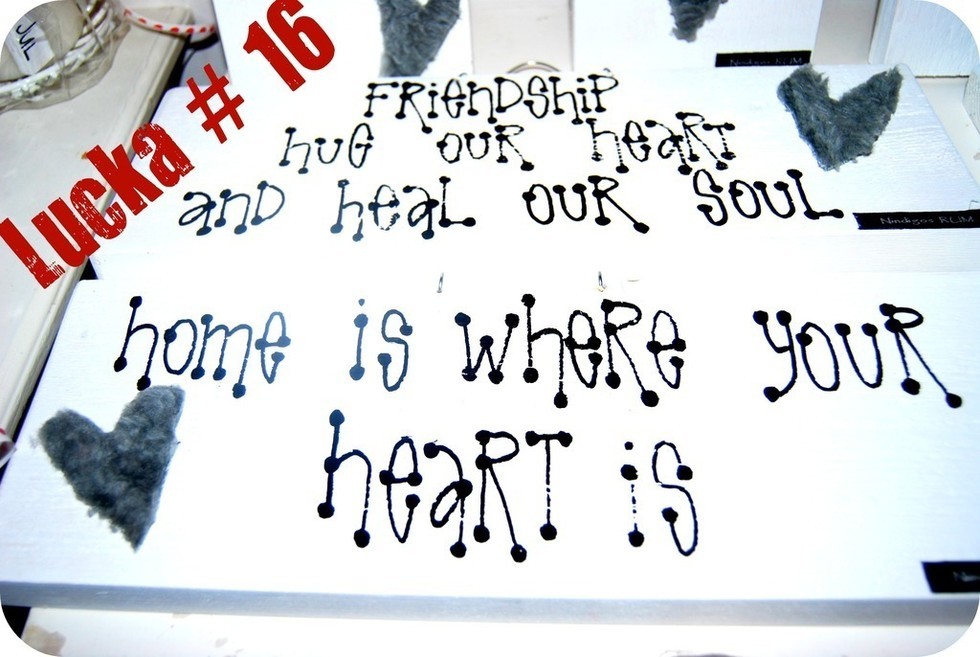 JUL
Lucka # 16
FRiEnDShiP
huG OUR heaRT
anD heaL OUR SOUL
home is wheRe yOUR
heaRT is